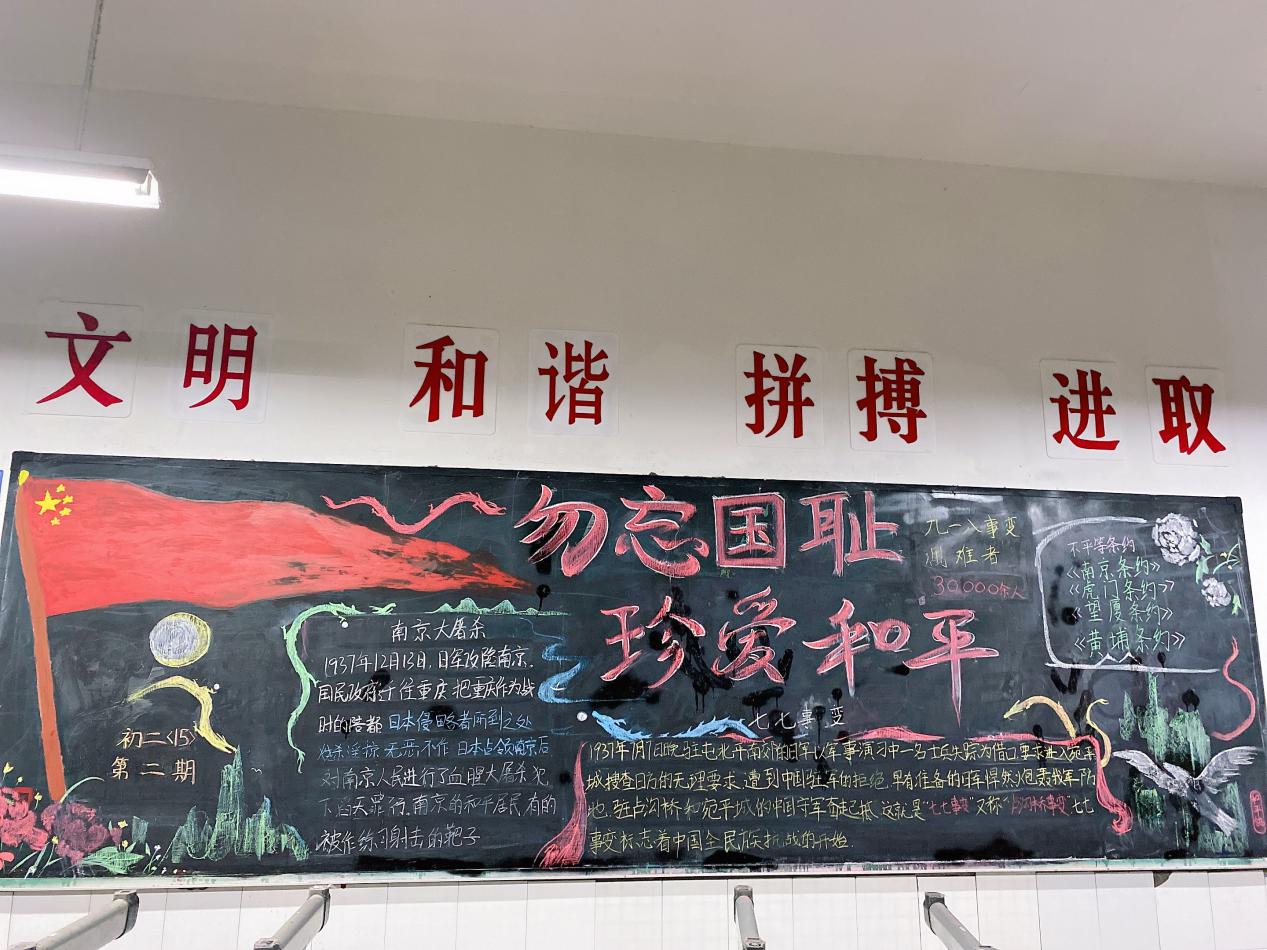 文明 和谐 拼搏 进取
勿忘国耻
珍爱和平
九一八事变
遇难者
30,000余人
不平等条约
《南京条约》
《虎门条约》
《望厦条约》
《黄埔条约》
初二〈15〉
第二期
南京大屠杀
1937年12月13日,日军攻陷南京.
国民政府迁任重庆,把重庆作为战
时的陪都 日本侵略者所到之处
烧杀淫掠 无恶不作 日本占领南京后
对南京人民进行了血腥大屠杀,犯
下滔天罪行.南京的和平居民,有的
被作练习射击的靶子
七七事变
1937年7月7日晚,驻屯北平南郊的日军以军事演习中一名士兵失踪为借口要求进入宛平
城搜查日方的无理要求,遭到中国驻军的拒绝,早有准备的日军悍然炮轰我军阵
地,驻卢沟桥和宛平城的中国守军奋起抵,这就是"七七事变"又称"卢沟桥事变",七七
事变标志着中国全民族抗战的开始.